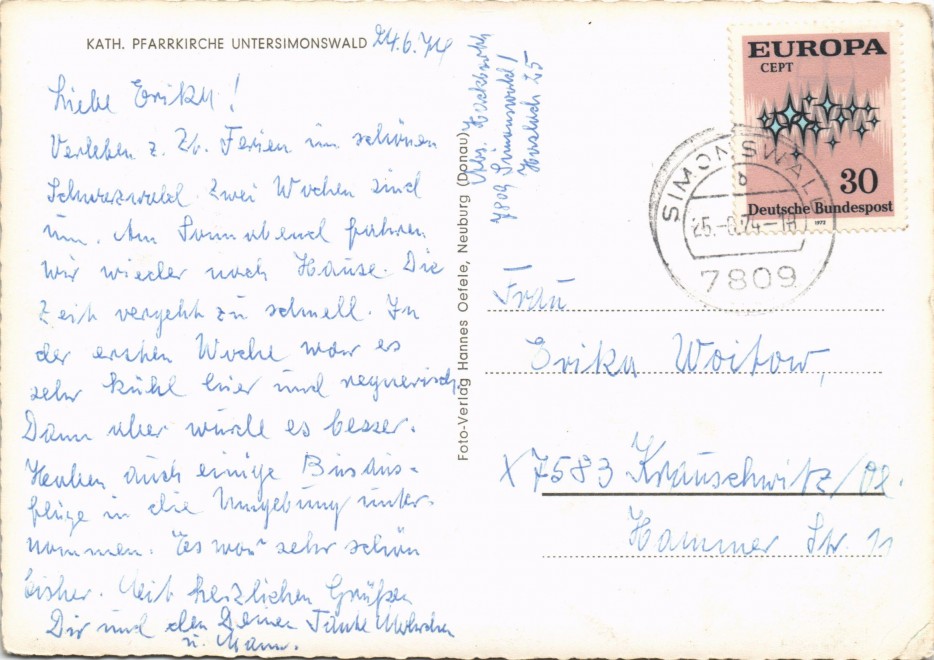 KATH. PFARRKIRCHE UNTERSIMONSWALD 24.6.74
Liebe Erika!
Verleben z. Zt. Ferien im schönen
Schwarzwald. Zwei Wochen sind
um. Am Sonnabend fahren
wir wieder nach Hause. Die
Zeit vergeht zu schnell. In
der ersten Woche war es
sehr kühl hier und regnerisch.
Dann aber wurde es besser.
Haben auch einige Busaus-
flüge in die Umgebung unter-
nommen. Es war sehr schön
bisher. Mit herzlichen Grüßen
Dir und den Deinen Tante
u. Mann.
Foto-Verlag Hannes Oefele, Neuburg (Donau)
7809 Simonswald
25
EUROPA
CEPT
30
Deutsche Bundespost
1972
SIMONSWALD
b
25.-6.74-18
7809
Frau
Erika Woitow,
X 7583 Krauschwitz/OL.
Hammer Str. 11